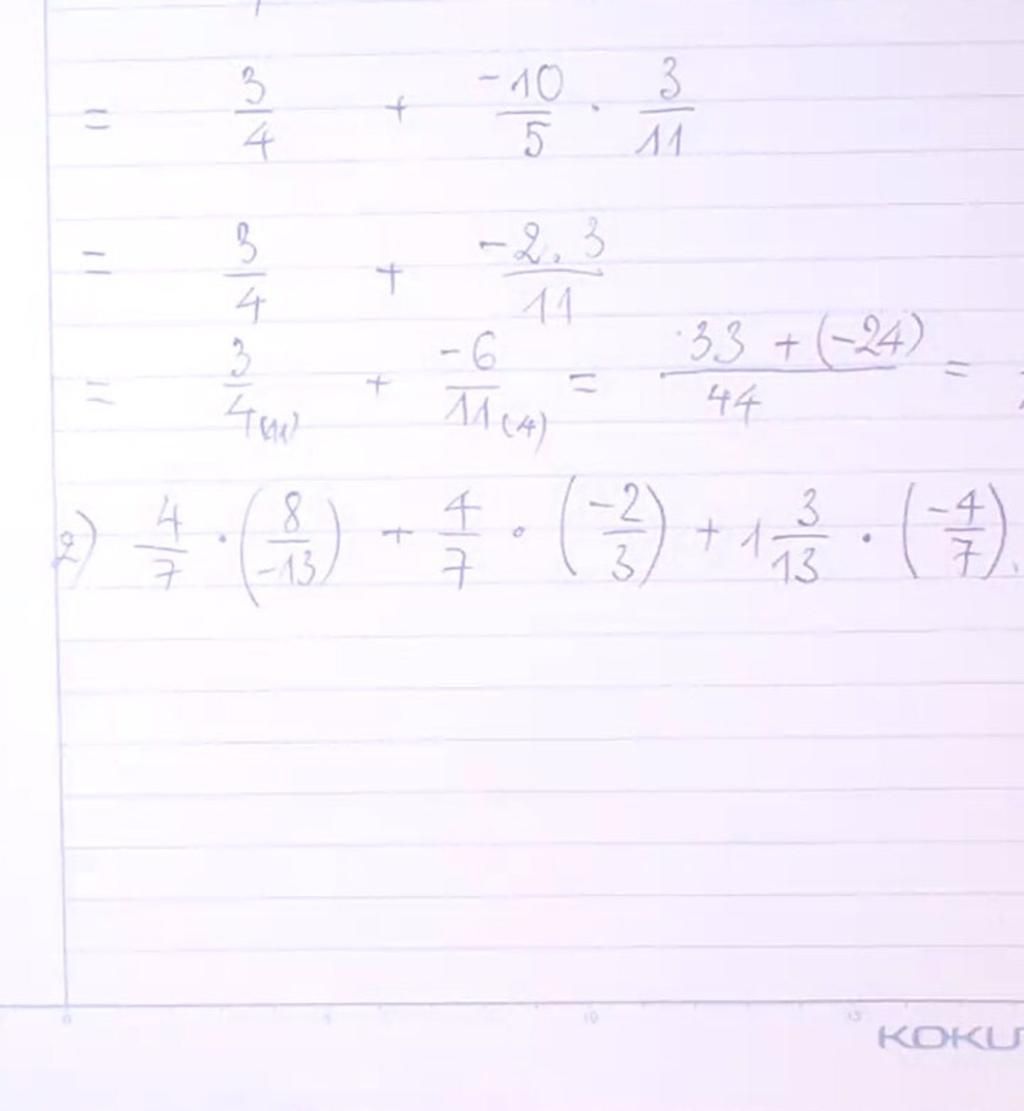 = 3/4 + -10/5 · 3/11
= 3/4 + -2.3/11
= 3/4(11) + -6/11(4) = 33 + (-24)/44 =
2) 4/7 · (8/-13) + 4/7 · (-2/3) + 1 3/13 · (-4/7).
0 5 10 15
KOKU